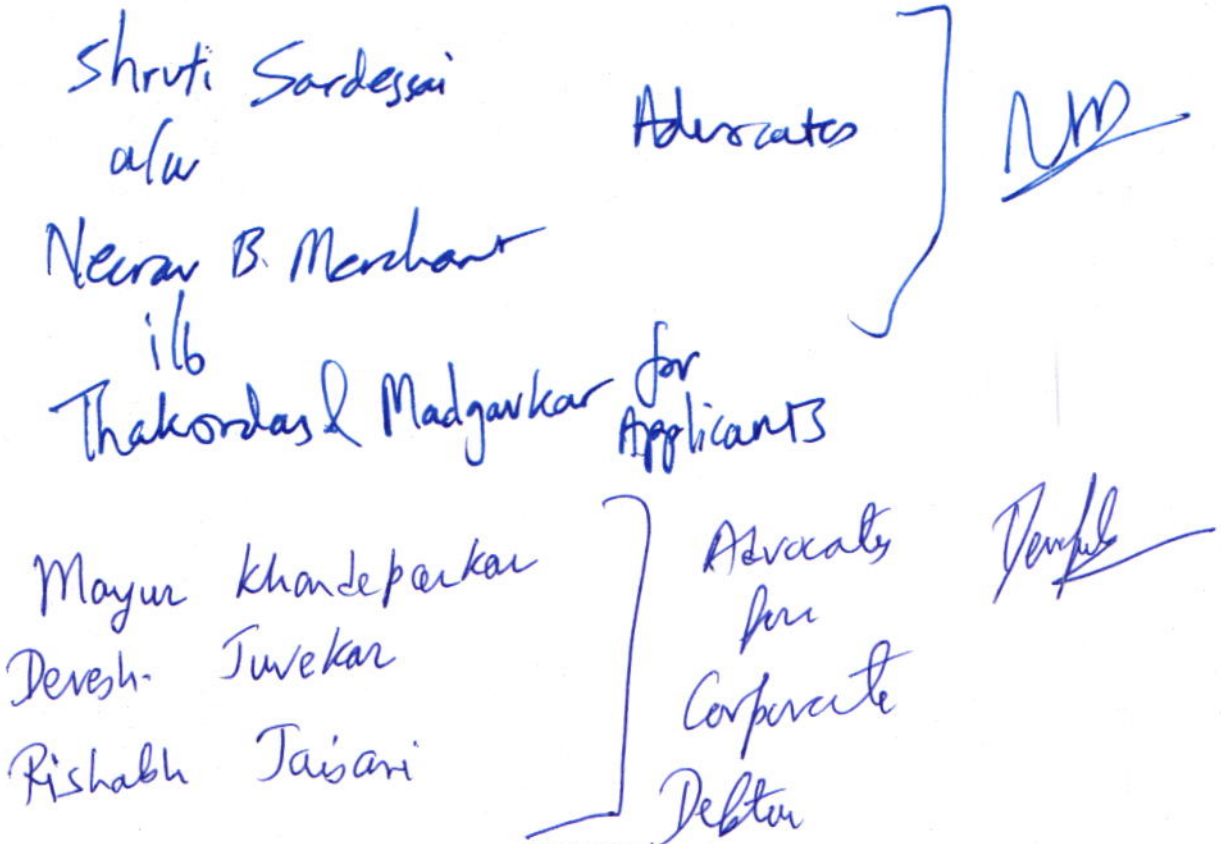 Shruti Sardessai
a/w
Advocates
Neerav B. Merchant
i/b
Thakordas & Madgavkar for
Applicants
Mayur Khandeparkar
Devesh Juvekar
Rishabh Jaisani
Advocates
for
Corporate
Debtor